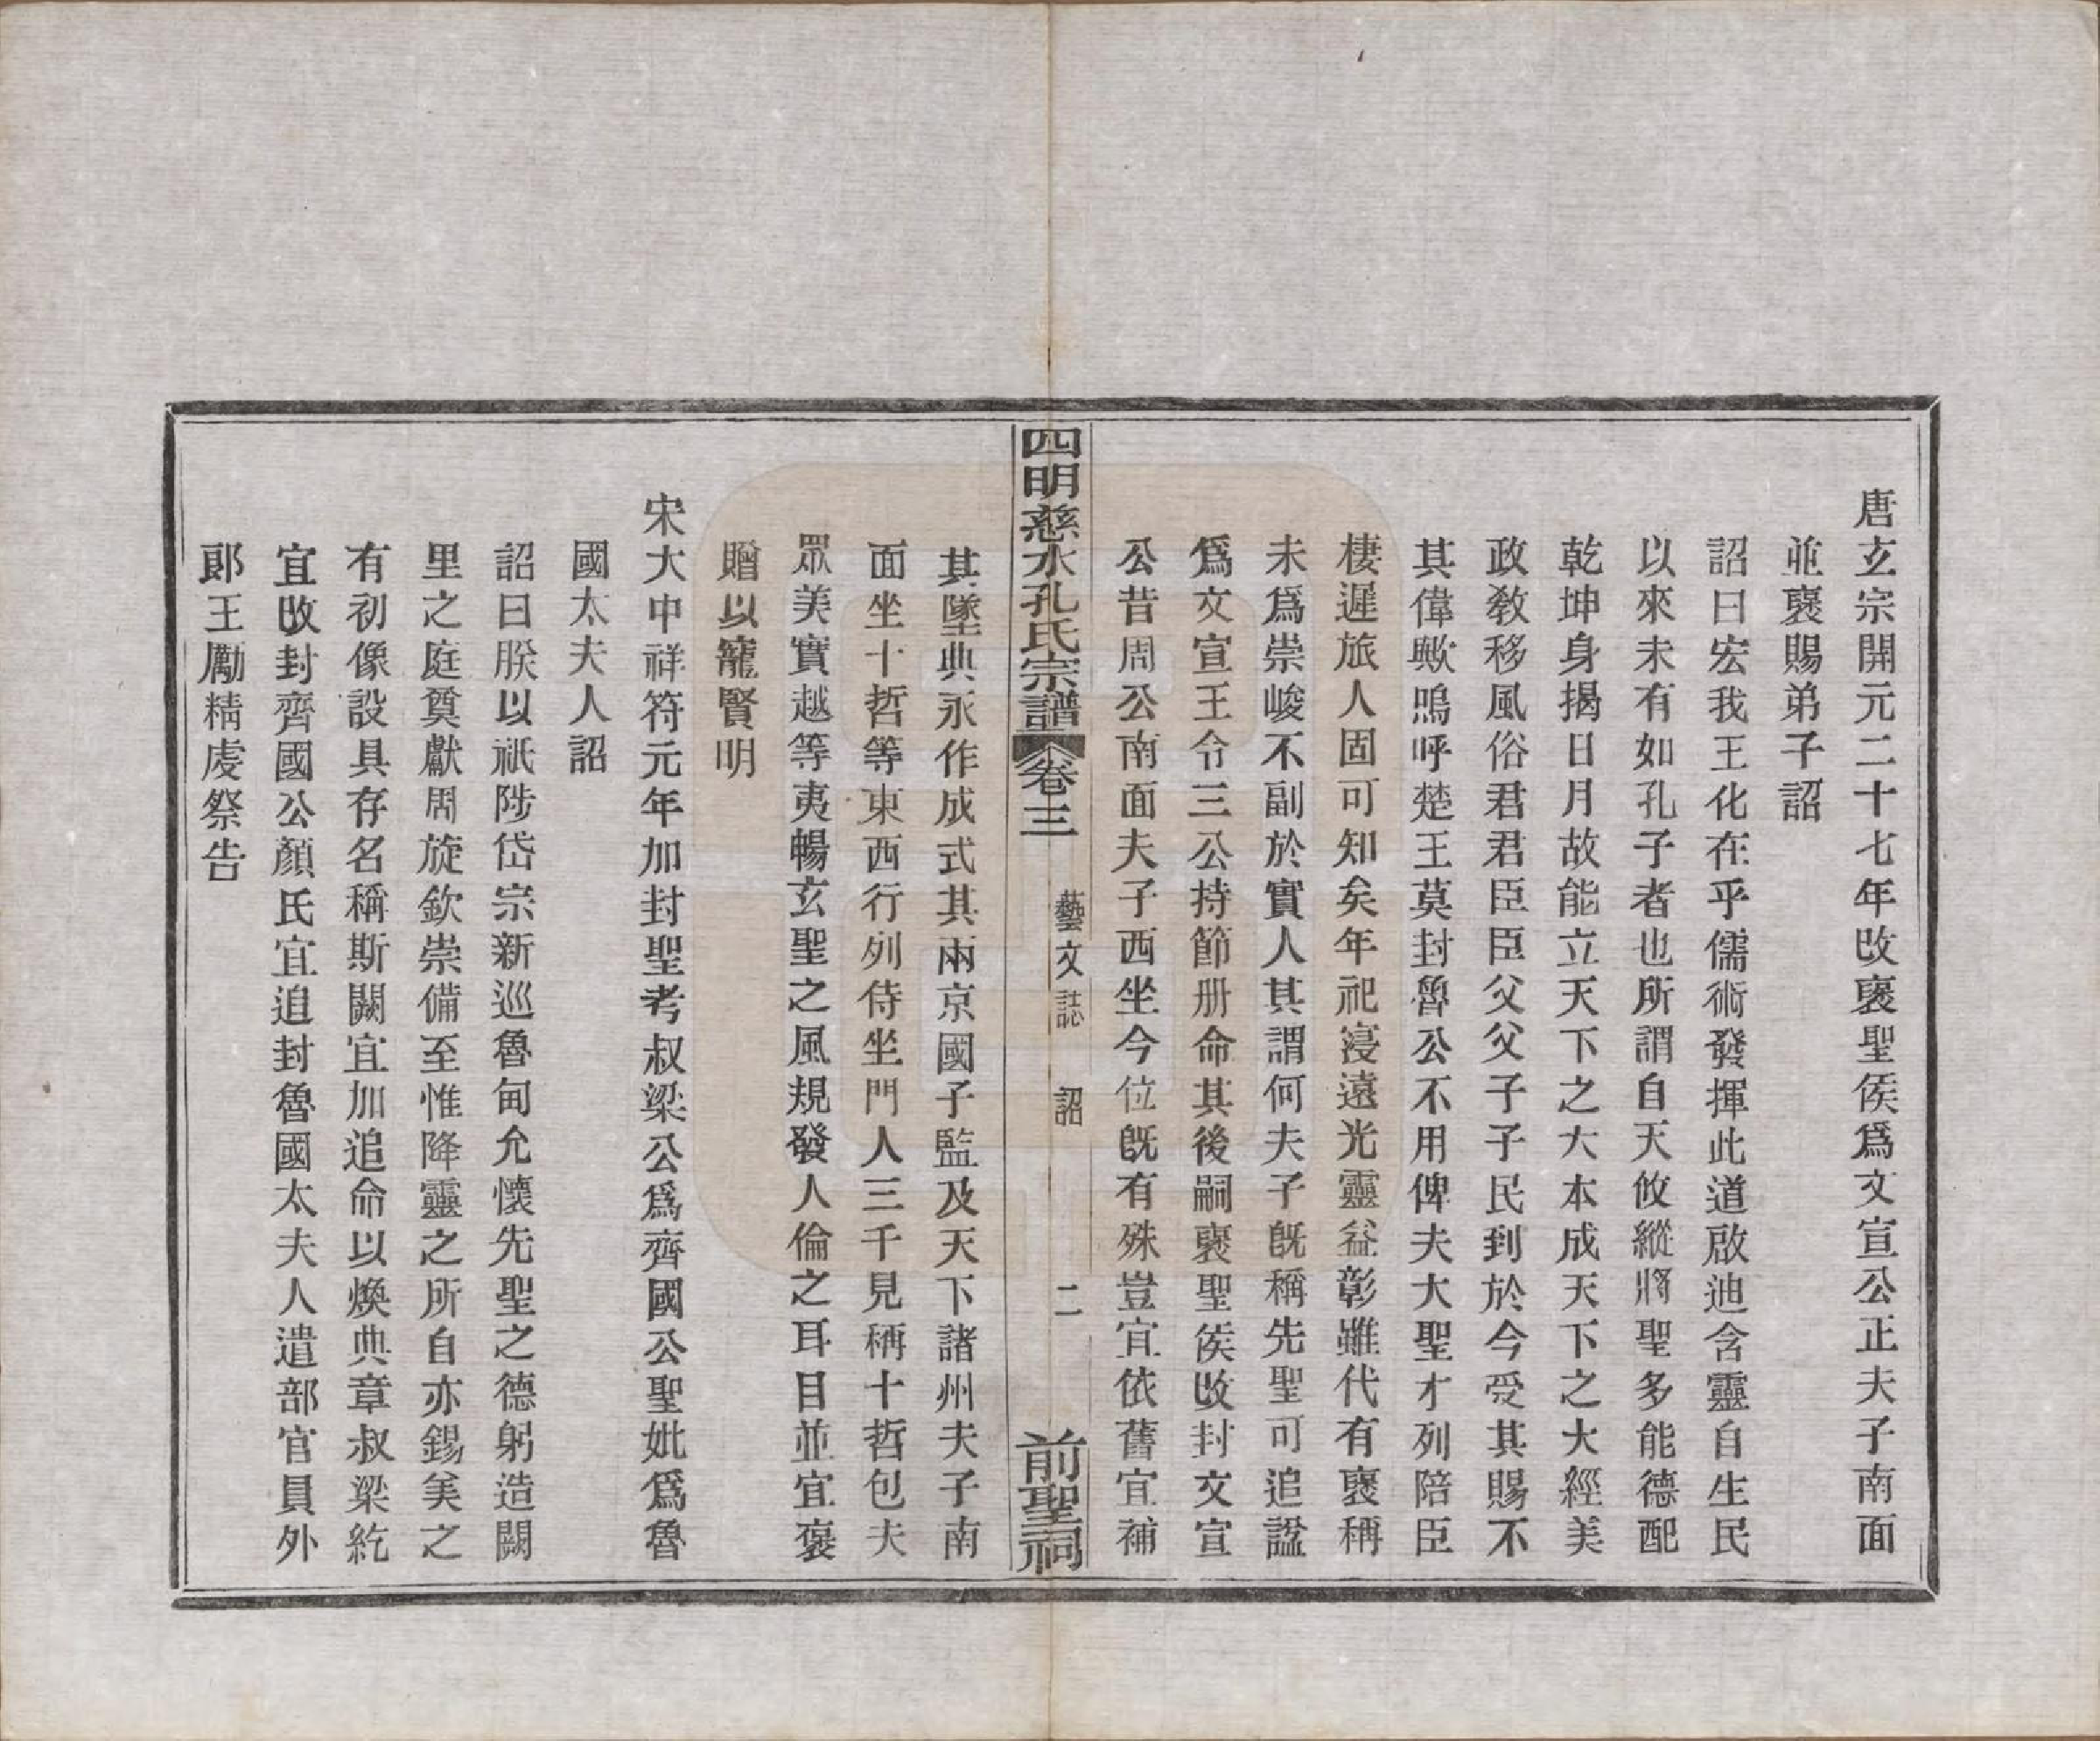 唐玄宗開元二十七年改襃聖侯爲文宣公正夫子南面
並襃賜弟子詔
詔曰宏我王化在乎儒術發揮此道啟迪含靈自生民
以來未有如孔子者也所謂自天攸縱將聖多能德配
乾坤身揭日月故能立天下之大本成天下之大經美
政敎移風俗君君臣臣父父子子民到於今受其賜不
其偉歟鳴呼楚王莫封魯公不用俾夫大聖才列陪臣
棲遲旅人固可知矣年祀寖遠光靈益彰雖代有襃稱
未爲崇峻不副於實人其謂何夫子旣稱先聖可追諡
爲文宣王令三公持節册命其後嗣襃聖侯改封文宣
公昔周公南面夫子西坐今位旣有殊豈宜依舊宜補
四明慈水孔氏宗譜 卷三 藝文誌 詔 二 前聖祠
其墜典永作成式其兩京國子監及天下諸州夫子南
面坐十哲等東西行列侍坐門人三千見稱十哲包夫
眾美實越等夷暢玄聖之風規發人倫之耳目並宜褒
贈以寵賢明
宋大中祥符元年加封聖考叔梁公爲齊國公聖妣爲魯
國太夫人詔
詔曰朕以祇陟岱宗新巡魯甸允懷先聖之德躬造闕
里之庭奠獻周旋欽崇備至惟降靈之所自亦錫美之
有初像設具存名稱斯闕宜加追命以煥典章叔梁紇
宜改封齊國公顏氏宜追封魯國太夫人遣部官員外
郞王勵精虔祭告